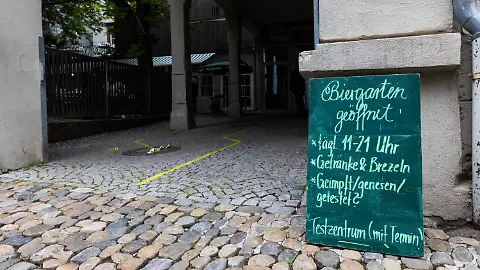 Biergarten
geöffnet
* tägl 11-21 Uhr
* Getränke & Brezeln
* Geimpft/genesen/
getestet
Testzentrum (mit Termin)